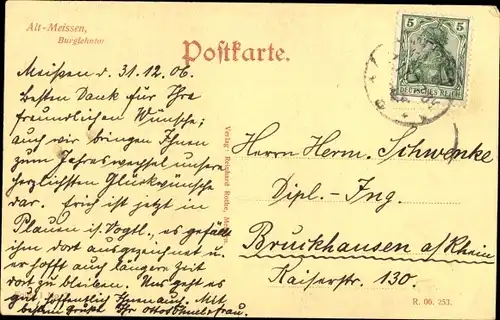 Alt-Meissen,
Burglehntor
Postkarte.
5 5
DEUTSCHES REICH
Meißen d. 31.12.06.
besten Dank für Ihre
freundlichen Wünsche;
auch wir bringen Ihnen
zum Jahreswechsel unsere
herzlichsten Glückwünsche
dar. Erich ist jetzt in
Plauen i. Vogtl., es gefällt
ihm dort ausgezeichnet u.
er hofft auch längere Zeit
dort zu bleiben. Uns geht es
gut, hoffentlich Ihnen auch. Mit
bestem Gruße Ihr
Verlag: Reinhard Rothe, Meissen.
Herrn Herm. Schwenke
Dipl.-Ing.
Bruckhausen a/Rhein
Kaiserstr. 130.
R. 06. 253.